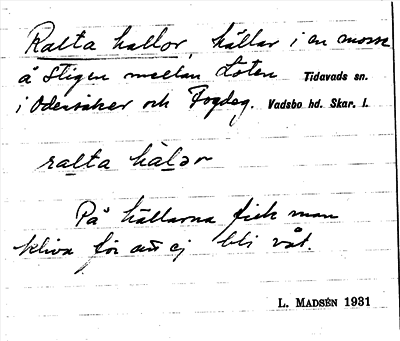 Ralta hallor, hällar i en mosse
å stigen mellan Loten Tidavads sn.
i Odensåker och Fogdeg. Vadsbo hd. Skar. l.
ralta hälər
På hällarna fick man
kliva för att ej bli våt.
L. MADSÉN 1931